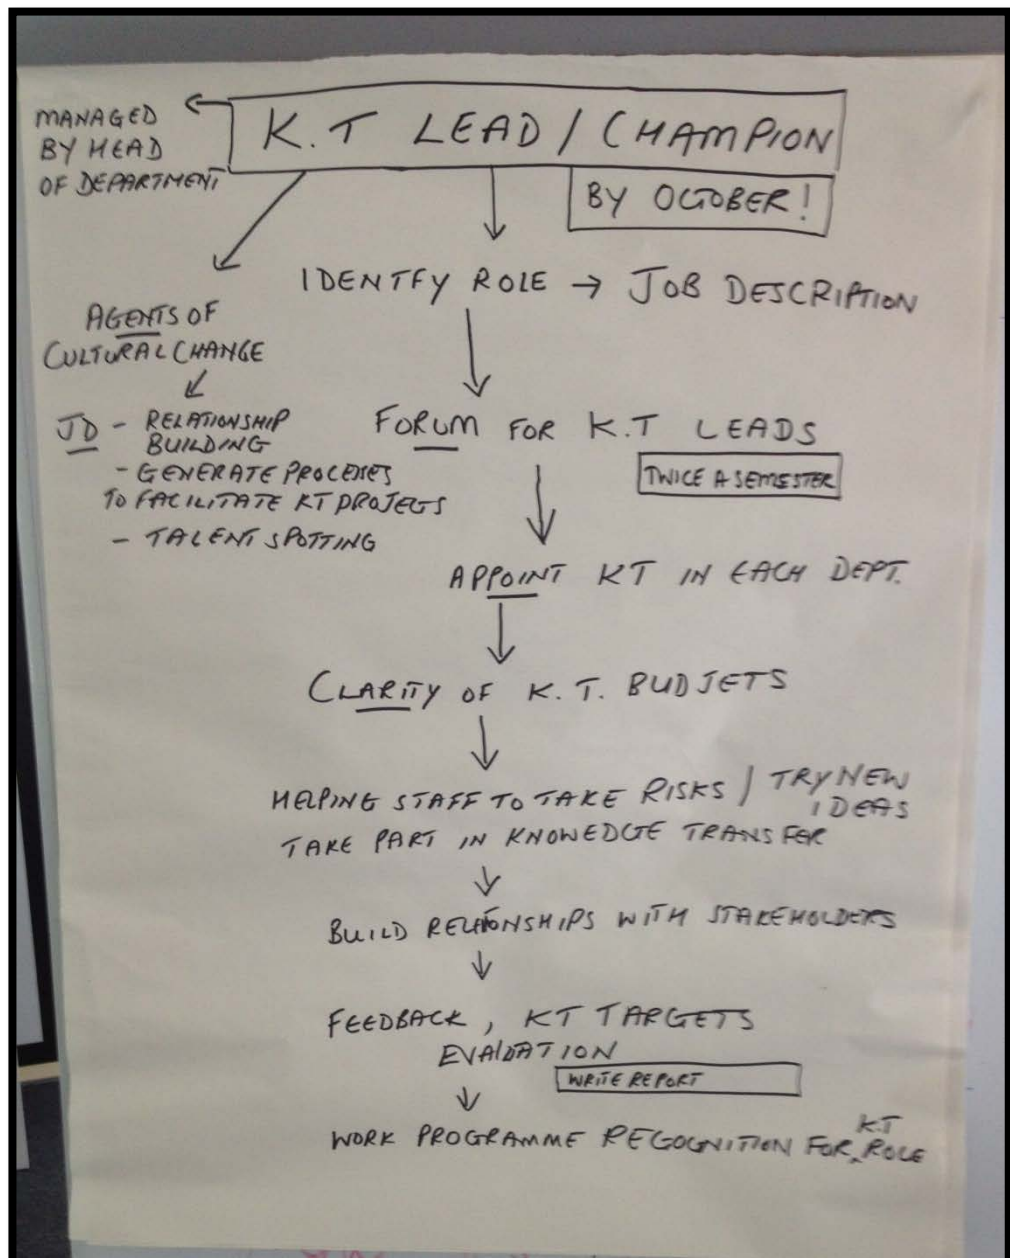 MANAGED
BY HEAD
OF DEPARTMENT
K.T LEAD / CHAMPION
BY OCTOBER!
IDENTFY ROLE → JOB DESCRIPTION
AGENTS OF
CULTURAL CHANGE
JD - RELATIONSHIP
BUILDING
- GENERATE PROCESSES
TO FACILITATE KT PROJECTS
- TALENT SPOTTING
FORUM FOR K.T LEADS
TWICE A SEMESTER
APPOINT KT IN EACH DEPT.
CLARITY OF K.T. BUDJETS
HELPING STAFF TO TAKE RISKS / TRY NEW
IDEAS
TAKE PART IN KNOWEDGE TRANSFER
BUILD RELATIONSHIPS WITH STAKEHOLDERS
FEEDBACK, KT TARGETS
EVALUATION
WRITE REPORT
WORK PROGRAMME RECOGNITION FOR KT ROLE